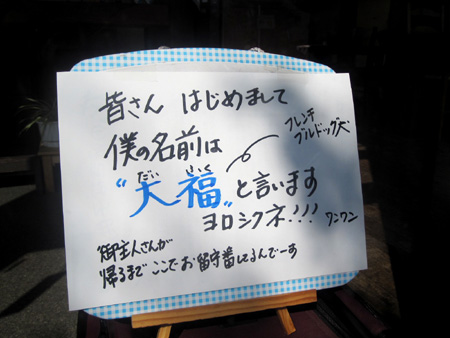 皆さん はじめまして
僕の名前は
フレンチ
ブルドッグ犬
だい ふく
"大福"と言います
ヨロシクネ!!! ワンワン
御主人さんが
帰るまでここでお留守番してるんでーす